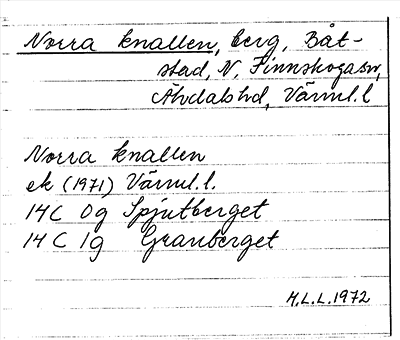 Norra knallen, berg, Båt-
stad, N, Finnskoga sn,
Älvdals hd, Värml. l
Norra knallen
ek (1971) Värml. l.
14C 0g Spjutberget
14C 1g Granberget
H.L.L. 1972